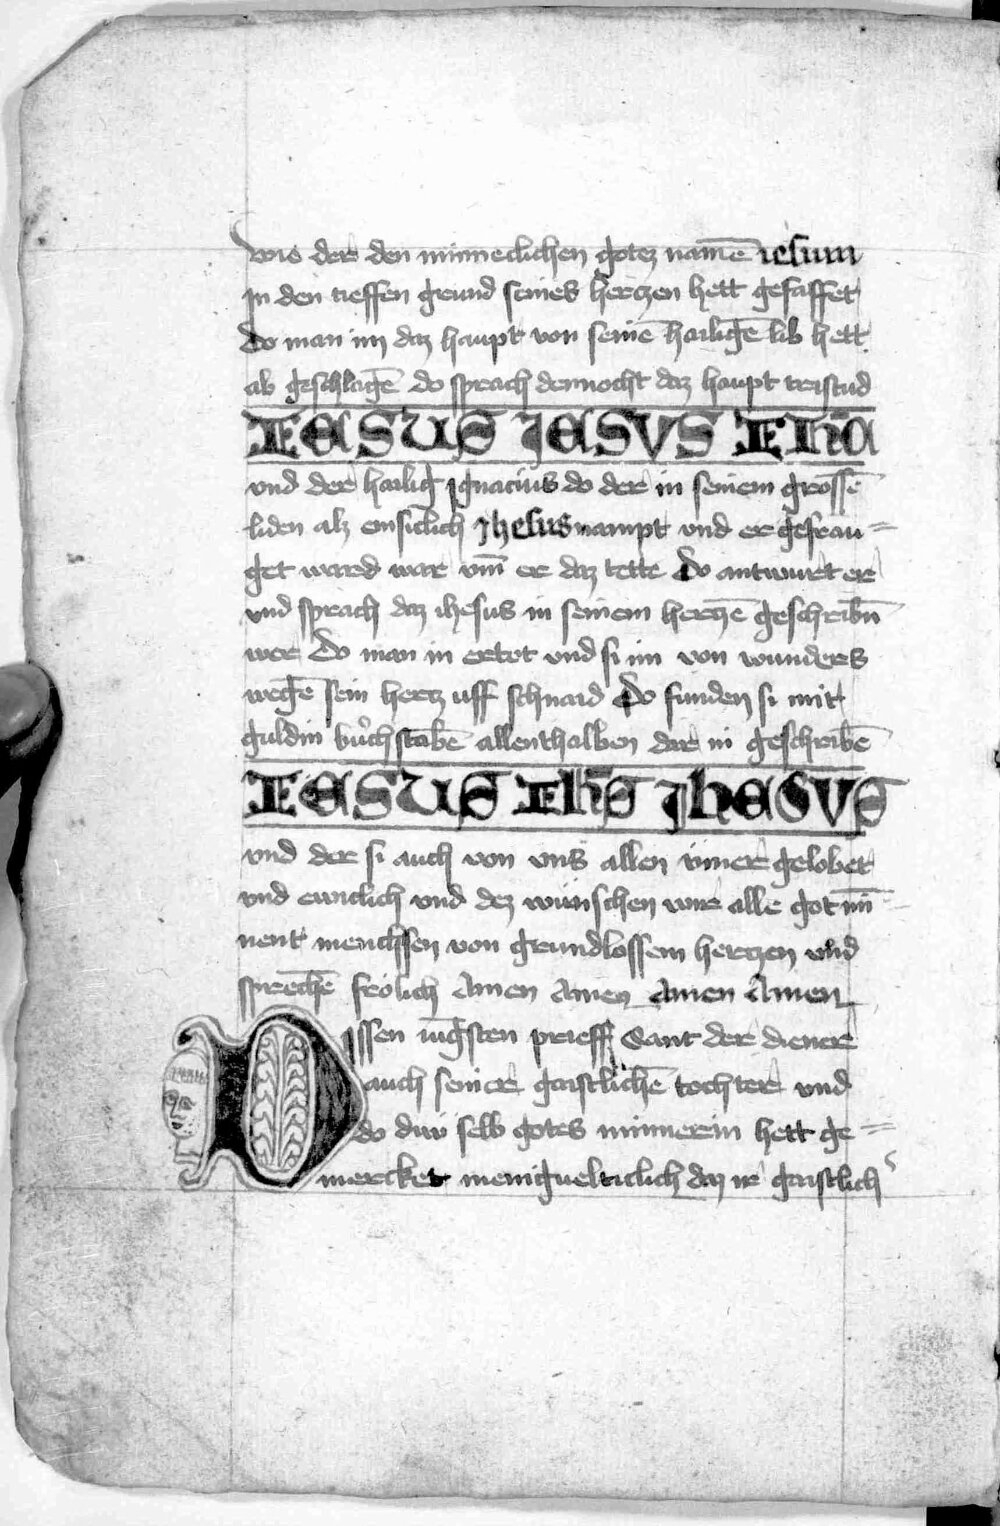 wie der den minneclichen gotez namē iesum
in den tieffen grund seines hertzen hett gefasset
do man im daz haupt von seinē hailigē lib hett
ab geschlagē do sprach dennocht daz haupt treistud
IESUS JESVS IHC
vnd der hailig ignacius do der in seinem grossē
liden alz emsiclich jhesus nampt vnd er gefrau=
get ward war vm̄ er daz tette Do antwurt er
vnd sprach daz ihesus in seinem hertzē geschribn̄
wer Do man in ertot vnd si im von wunders
wegē sein hertz uff schnaid Do funden si mit
guldin bůchstabē allenthalben dar in geschribē
IESUS IHS̄ JHESVS
vnd der si auch von vns allen vimer gelobet
vnd ewiclich vnd dez wünschen wir alle got mī=
nent menchssen von grundlossem hertzen vnd
sprechē frölich Amen Amen Amen Amen
Dissen iūgsten prieff Sant der diener
auch seiner gaistlichē tochter vnd
do duv selb gotes minnerin hett ge=
mercket meniguelticlich daz ir gaistlich